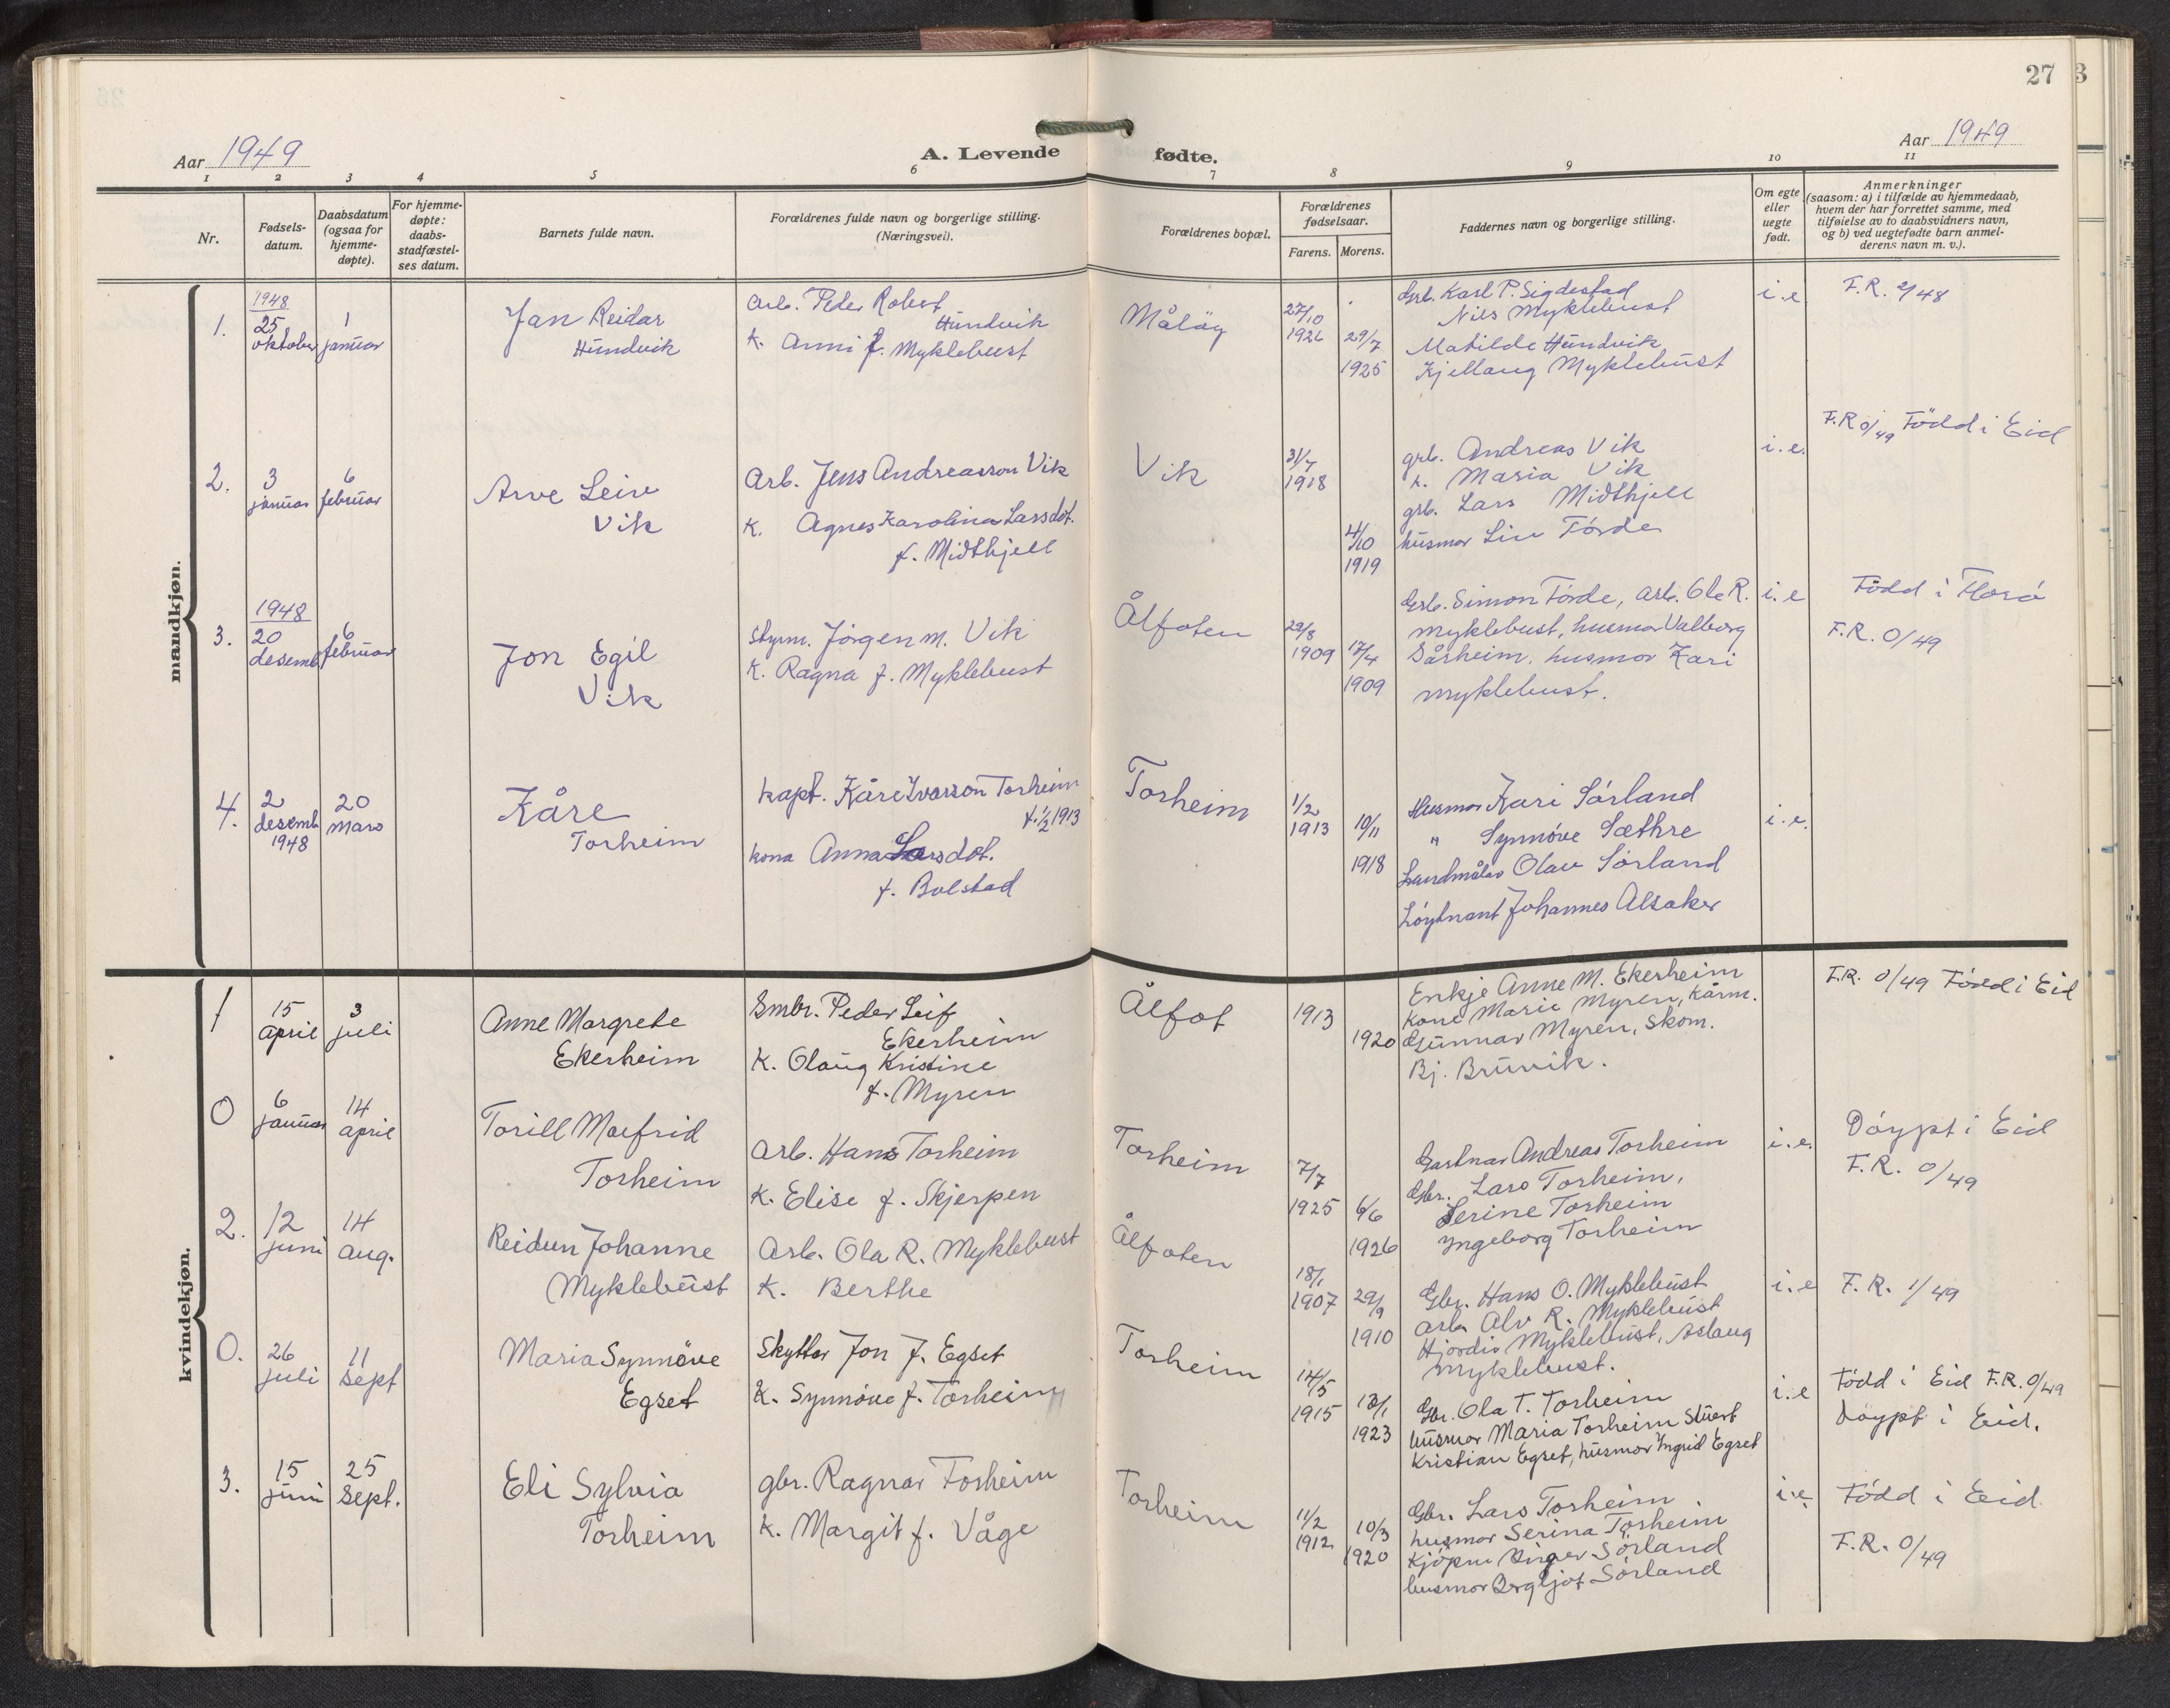 27
3
Aar 1949
A. Levende fødte.
Aar 1949
1 2 3 4 5 6 7 8 9 10 11
Nr.
Fødsels-
datum.
Daabsdatum
(ogsaa for
hjemme-
døpte).
For hjemme-
døpte:
daabs-
stadfæstel-
ses datum.
Barnets fulde navn.
Forældrenes fulde navn og borgerlige stilling.
(Næringsvei).
Forældrenes bopæl.
Forældrenes
fødselsaar.
Farens. Morens.
Faddernes navn og borgerlige stilling.
Om egte
eller
uegte
født.
Anmerkninger
(saasom: a) i tilfælde av hjemmedaab,
hvem der har forrettet samme, med
tilføielse av to daabsvidners navn,
og b) ved uegtefødte barn anmel-
derens navn m. v.).
mandkjøn.
1.
1948
25
oktober
1
januar
Jan Reidar
Hundvik
Arb. Peder Robert
Hundvik
K. Anni f. Myklebust
Måløy
27/10
1926
29/7
1925
Grb. Karl P. Sigdestad
Nils Myklebust
Matilde Hundvik
Kjellaug Myklebust
i.e
F.R. 2/48
2.
3
januar
6
februar
Arve Leiv
Vik
Arb. Jens Andreasson Vik
K. Agnes Karolina Larsdot.
f. Midthjell
Vik
31/7
1918
4/10
1919
grb. Andreas Vik
k. Maria Vik
grb. Lars Midthjell
husmor Liv Förde
i.e.
F.R 0/49 Född i Eid
3.
1948
20
desemb
6
februar
Jon Egil
Vik
Styrm. Jörgen M. Vik
K. Ragna f. Myklebust
Ålfoten
29/8
1909
17/4
1909
Grb. Simon Förde, arb. Ole R.
Myklebust, husmor Valborg
Sårheim, husmor Kari
Myklebust.
i.e
Född i Florö
F.R. 0/49
4.
2
desemb
1948
20
mars
Kåre
Torheim
kapt. Kåre Ivarson Torheim
f. 1/2 1913
kona Anna Larsdot.
f. Bolstad
Torheim
1/2
1913
10/11
1918
Husmor Kari Sörland
" Synnöve Sæthre
Landmålar Olav Sörland
Löytnant Johannes Alsaker
i.e.
kvindekjøn.
1
15
april
3
juli
Anne Margrete
Ekerheim
Smbr. Peder Leif
Ekerheim
K. Olaug Kristine
f. Myren
Ålfot
1913
1920
Enkje Anne M. Ekerheim
Kone Marie Myren, Kårm.
Gunnar Myren, Skom.
Bj. Bruvik.
F.R. 0/49 Född i Eid
0
6
januar
14
april
Torill Malfrid
Torheim
Arb. Hans Torheim
K. Elise f. Skjerpen
Torheim
7/7
1925
6/6
1926
Gartnar Andreas Torheim
Gbr. Lars Torheim,
Serine Torheim
Yngeborg Torheim
i.e.
Döypt i Eid
F.R. 0/49
2.
12
juni
14
aug.
Reidun Johanne
Myklebust
Arb. Ola R. Myklebust
K. Berthe
Ålfoten
18/1
1907
29/9
1910
Gbr. Hans O. Myklebust
Arb. Alv R. Myklebust
Hjördis Myklebust, Aslaug
Myklebust.
i.e
F.R. 1/49
0.
26
juli
11
sept
Maria Synnöve
Egset
Skyttar Jon J. Egset
K. Synnöve f. Torheim
Torheim
14/5
1915
13/1
1923
Gbr. Ola T. Torheim
husmor Maria Torheim Stuert
Kristian Egset, husmor Yngrid Egset
i.e
Född i Eid F.R. 0/49
Döypt i Eid.
3.
15
juni
25
sept.
Eli Sylvia
Torheim
gbr. Ragnar Torheim
k. Margit f. Våge
Torheim
11/2
1912
10/3
1920
Gbr. Lars Torheim
husmor Serina Torheim
Kjöpm Sörland
husmor Bergljot Sörland
i.e.
Född i Eid.
F.R. 0/49